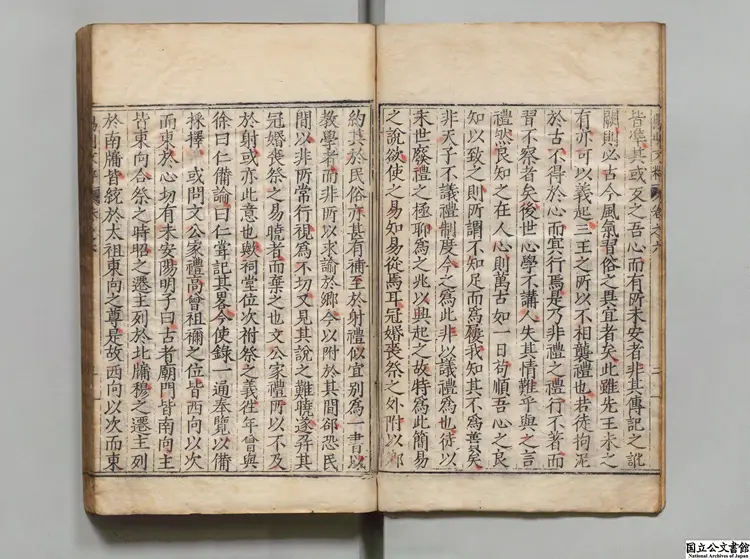 陽明文粹 卷之六
皆準其或反之吾心而有所未安者非其傳記之訛
闕則必古今風氣習俗之異宜者矣此雖先王未之
有亦可以義起三王之所以不相襲禮也若徒拘泥
於古不得於心而冥行焉是乃非禮之禮行不著而
習不察者矣後世心學不講人失其情難乎與之言
禮然良知之在人心則萬古如一日苟順吾心之良
知以致之則所謂不知足而爲屨我知其不爲蕢矣
非天子不議禮制度今之爲此非以議禮爲也徒以
末世廢禮之極聊爲之兆以興起之故特爲此簡易
之說欲使之易知易從焉耳冠婚喪祭之外附以鄉
約其於民俗亦甚有補至於射禮似宜別爲一書以
教學者而非所以求諭於鄉今以附於其間卻恐民
間以非所常行視爲不切又見其說之難曉遂并其
冠婚喪祭之易曉者而棄之也文公家禮所以不及
於射或亦此意也歟祠堂位次祔祭之義往年曾與
徐曰仁備論曰仁嘗記其畧今使錄一通奉覽以備
採擇 或問文公家禮高曾祖禰之位皆西向以次
而東於心切有未安陽明子曰古者廟門皆南向主
皆東向合祭之時昭之遷主列於北牖穆之遷主列
於南牖皆統於太祖東向之尊是故西向以次而東
国立公文書館
National Archives of Japan